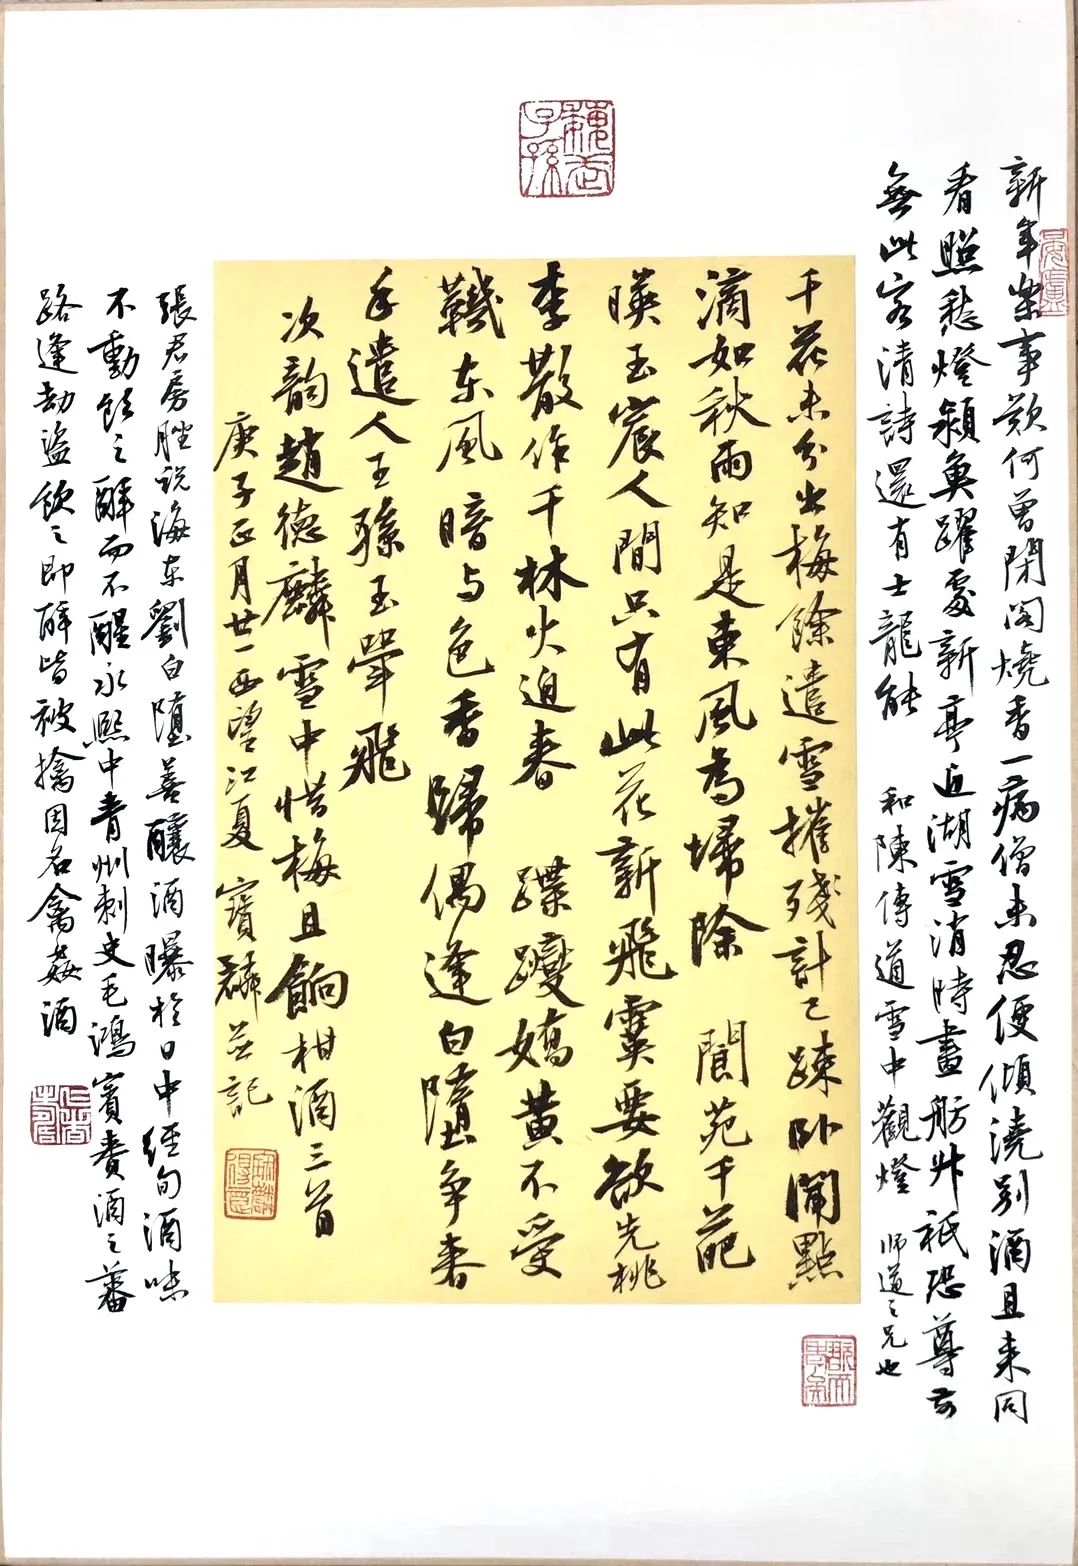 新年樂事歎何曾閉閣燒香一病僧未忍便傾澆别酒且来同
看照愁燈潁魚躍處新亭近湖雪消時畫舫升祇恐尊前
無此客清詩還有士龍能 和陳傳道雪中觀燈 师道之兄也
千花未分出梅餘遣雪摧殘計已踈卧聞點
滴如秋雨知是東風為埽除 閬苑千葩
暎玉宸人間只有此花新飛霙要欲先桃
李散作千林火迫春 蹀躞嬌黄不受
鞿东風暗与色香歸偶逢白墮争春
手遣人王孫玉斝飛
次韵趙德麟雪中惜梅且餉柑酒三首
庚子正月廿一西望江夏 寶麟并記
張君房脞说海东劉白墮善釀酒曝於日中經旬酒味
不動飲之醉而不醒永熙中青州刺史毛鴻賓賫酒之蕃
路逢劫盜飲之即醉皆被擒因名禽姦酒